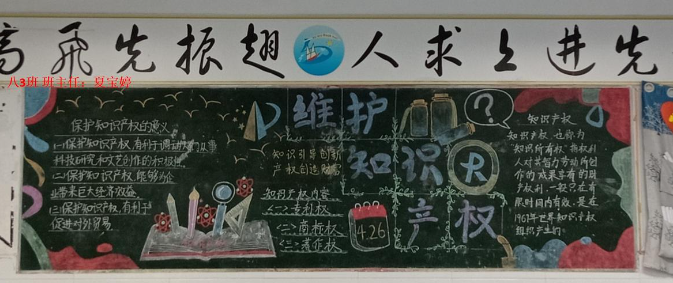 高飛先振翅 人求上進先
八3班 班主任：夏宝婷
保护知识产权的意义
(一)保护知识产权,有利于调动人们从事
科技研究和文艺创作的积极性
(二)保护知识产权,能够为企
业带来巨大经济效益
(三)保护知识产权,有利于
促进对外贸易
维护
知识
产权
R
?
知识引导创新
产权创造财富
知识产权内容
<一>专利权
<二>商标权
<三>著作权
4.26
知识产权
知识产权,也称为
知识所有权,指权利
人对其智力劳动所创
作的成果享有的财
产权利,一般只在有
限时间内有效,是在
1967年世界知识产权
组织产生的